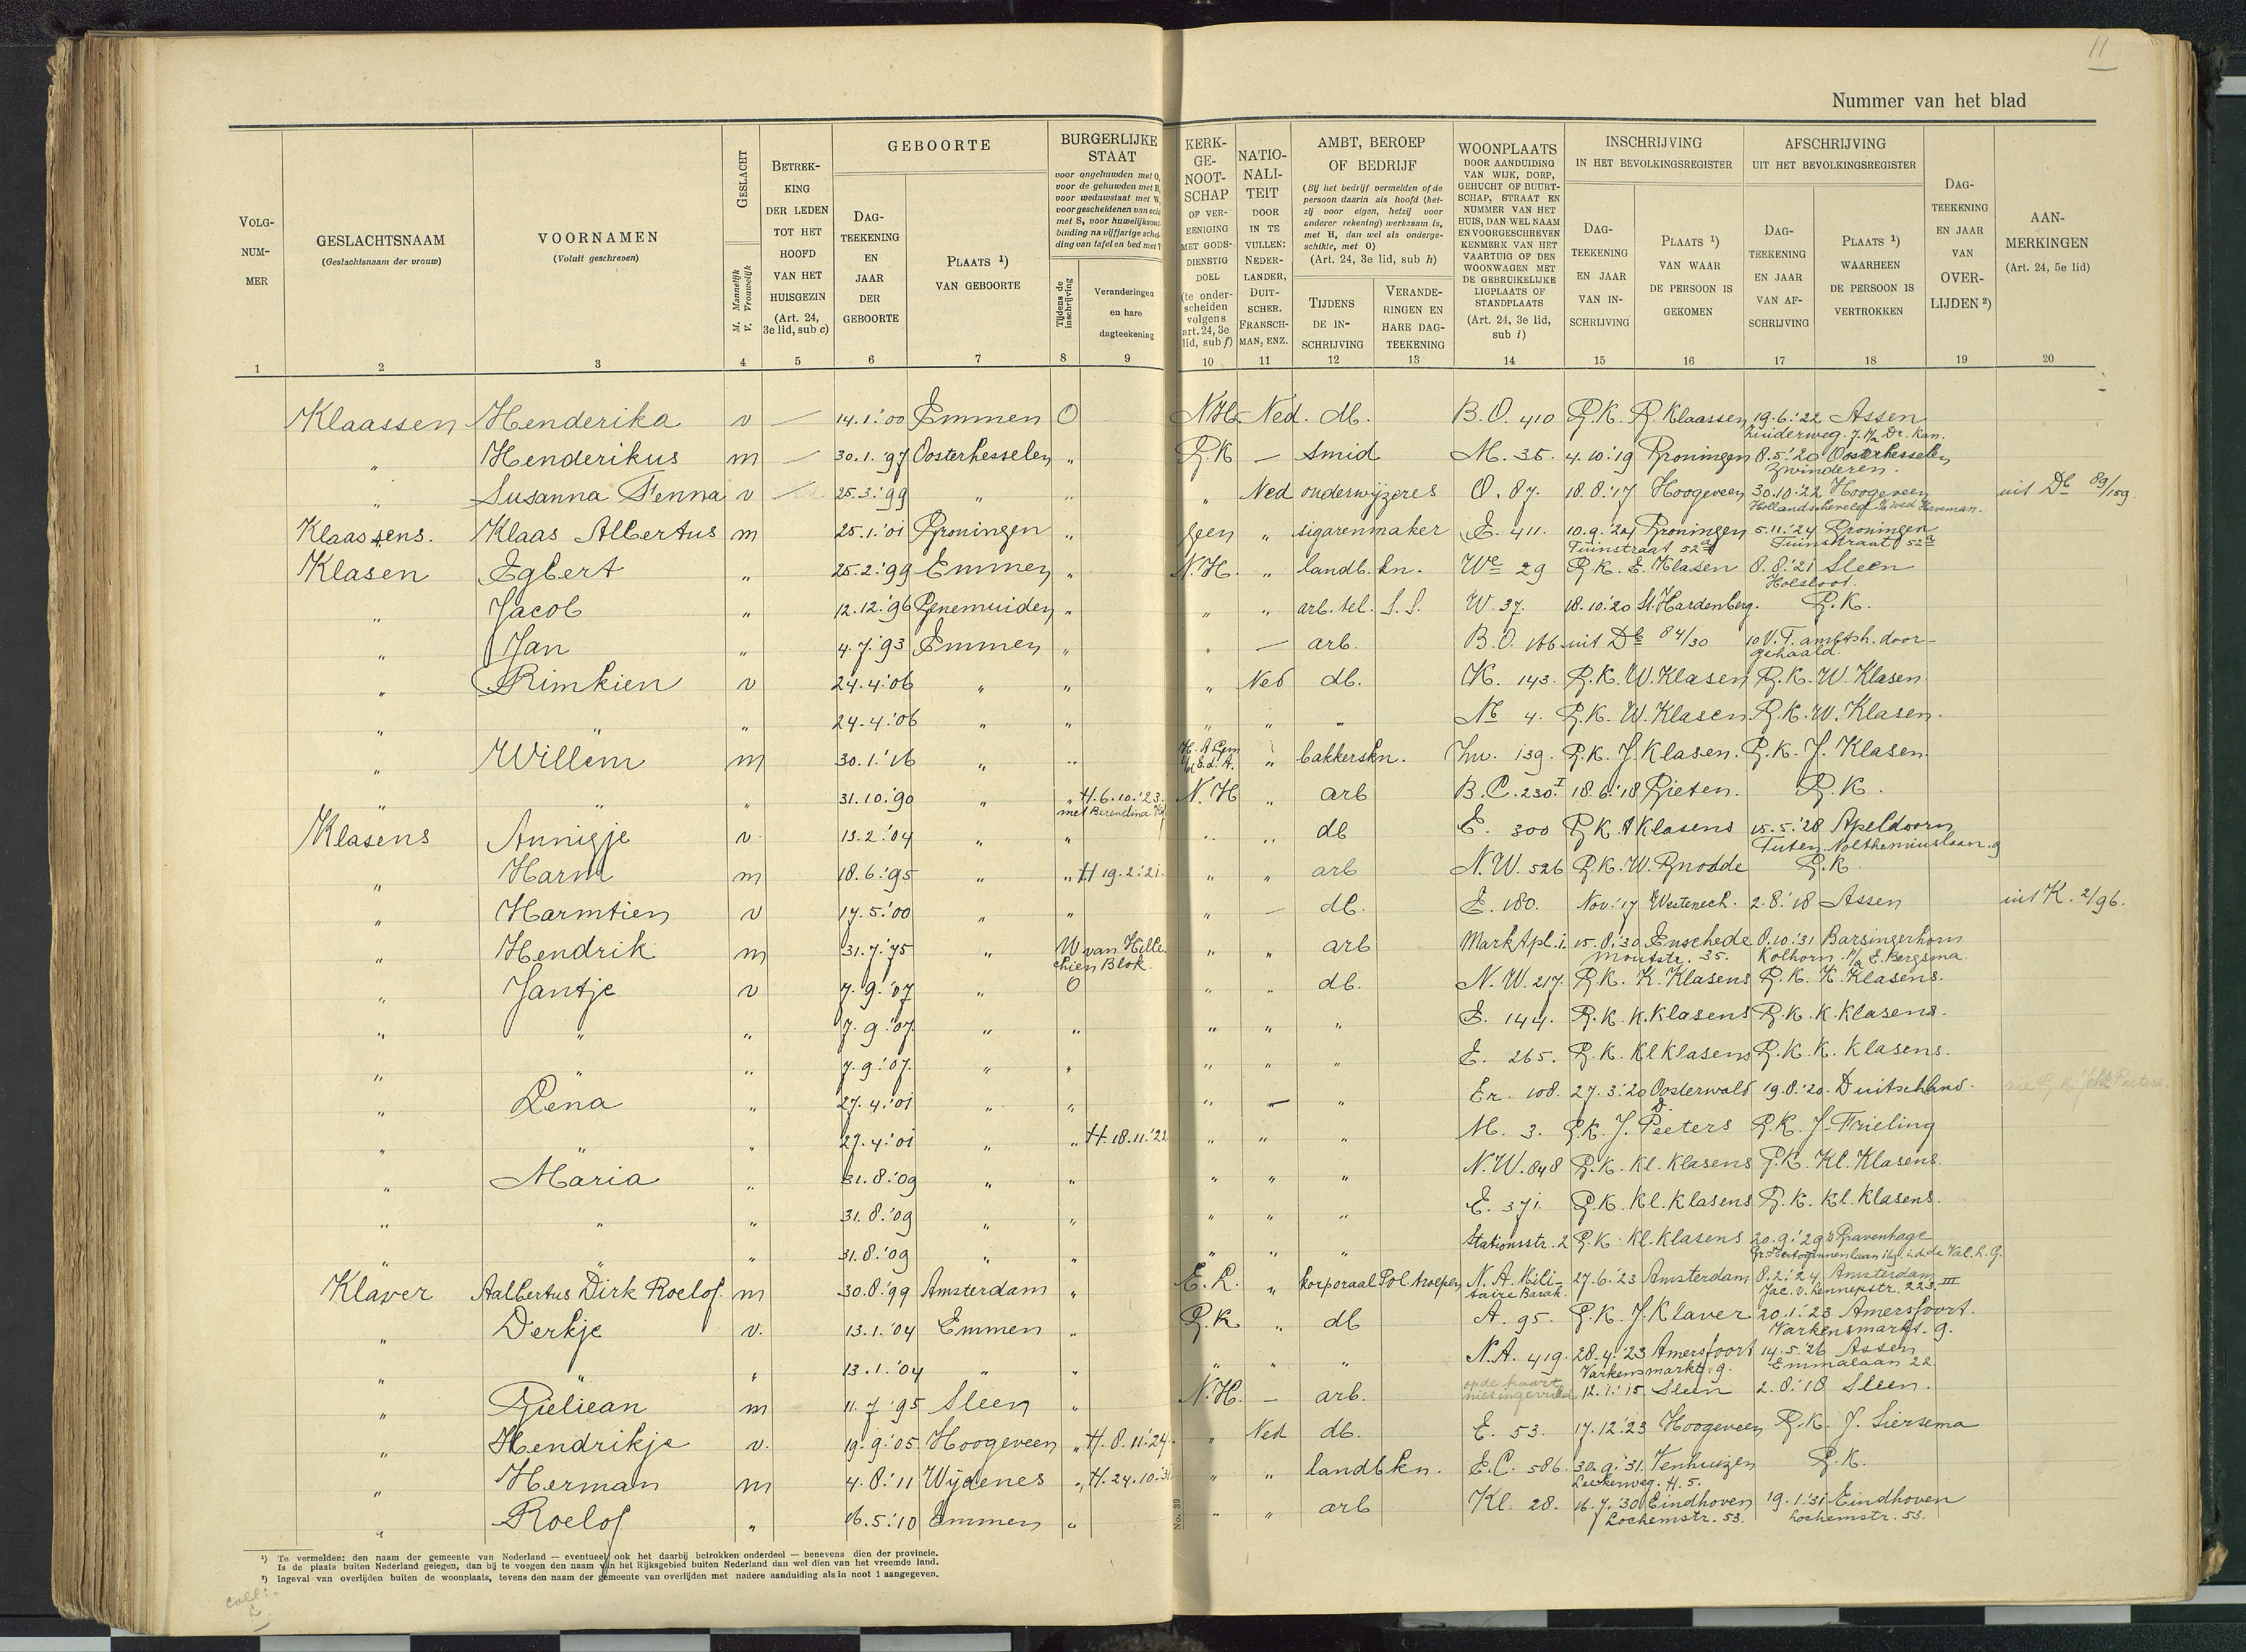 11
Nummer van het blad
VOLG-NUM-MER
GESLACHTSNAAM (Geslachtsnaam der vrouw)
VOORNAMEN (Voluit geschreven)
GESLACHT M. Mannelijk V. Vrouwelijk
BETREK-KING DER LEDEN TOT HET HOOFD VAN HET HUISGEZIN (Art. 24, 3e lid, sub c)
GEBOORTE
DAG-TEEKENING EN JAAR DER GEBOORTE
PLAATS ¹) VAN GEBOORTE
BURGERLIJKE STAAT
voor ongehuwden met O, voor de gehuwden met H, voor weduwstaat met W,
Tijdens de inschrijving
Veranderingen en hare dagteekening
KERK-GE-NOOT-SCHAP OF VER-EENIGING MET GODS-DIENSTIG DOEL (te onder-scheiden volgens art. 24, 3e lid, sub f)
NATIO-NALI-TEIT DOOR IN TE VULLEN: NEDER-LANDER, DUIT-SCHER. FRANSCH-MAN, ENZ.
AMBT, BEROEP OF BEDRIJF
(Bij het bedrijf vermelden of de persoon daarin als hoofd (het-zij voor eigen, hetzij voor anderer rekening) werkzaam is, met H, dan wel als onderge-schikte, met O)
(Art. 24, 3e lid, sub h)
TIJDENS DE IN-SCHRIJVING
VERANDE-RINGEN EN HARE DAG-TEEKENING
WOONPLAATS DOOR AANDUIDING VAN WIJK, DORP, GEHUCHT OF BUURT-SCHAP, STRAAT EN NUMMER VAN HET HUIS, DAN WEL NAAM EN VOORGESCHREVEN KENMERK VAN HET VAARTUIG OF DEN WOONWAGEN MET DE GEBRUIKELIJKE LIGPLAATS OF STANDPLAATS (Art. 24, 3e lid, sub i)
INSCHRIJVING IN HET BEVOLKINGSREGISTER
DAG-TEEKENING EN JAAR VAN IN-SCHRIJVING
PLAATS ¹) VAN WAAR DE PERSOON IS GEKOMEN
AFSCHRIJVING UIT HET BEVOLKINGSREGISTER
DAG-TEEKENING EN JAAR VAN AF-SCHRIJVING
PLAATS ¹) WAARHEEN DE PERSOON IS VERTROKKEN
DAG-TEEKENING EN JAAR VAN OVER-LIJDEN ²)
AAN-MERKINGEN (Art. 24, 5e lid)
1 2 3 4 5 6 7 8 9 10 11 12 13 14 15 16 17 18 19 20
Klaassen Henderika v — 14.1.'00 Emmen O N.H. Ned. db. B.O. 410 G.K. R. Klaassen 19.6.'22 Assen
Zuiderweg. 7. Dr. Kan.
" Henderikus m — 30.1.'97 Oosterhesselen " R.K — smid M. 35. 4.10.'19 Groningen 8.5.'20 Oosterhesselen
Zwinderen.
" Susanna Fenna v — 25.3.'99 " " " Ned onderwijzeres O. 87. 18.8.'17 Hoogeveen 30.10.'22 Hoogeveen uit Db 89/159.
Klaassens. Klaas Albertus m 25.1.'01 Groningen " geen " sigarenmaker E. 411. 10.9.'24 Groningen 5.11.'24 Groningen
Tuinstraat 52a Tuinstraat 52a
Klasen Egbert " 25.2.'99 Emmen " N.H. " landb. kn. We 29 G.K. E. Klasen 8.8.'21 Sleen
Holsloot.
" Jacob " 12.12.'96 Genemuiden " " " arb. tel. S.S. W. 37. 18.10.'20 St. Hardenberg. G.K.
" Jan " 4.7.'93 Emmen " " — arb. B.O. 166 uit Db 84/30 10.V.T. ambtsh. door-
gehaald.
" Rimkien v 24.4.'06 " " " Ned db. K. 143. G.K. W. Klasen G.K. W. Klasen
" " " 24.4.'06 " " " " " Nb 4. G.K. W. Klasen. G.K. W. Klasen.
" Willem m 30.1.'16 " " " bakkerskn. 139. G.K. J. Klasen. G.K. J. Klasen
" " " 31.10.'90 " " H. 6.10.'23. N.H " arb B.C. 230.I 18.6.'18 Gieten. G.K.
met Berendina
Klasens Annigje v. 13.2.'04 " " " " db E. 300 G.K A Klasens 15.5.'28 Apeldoorn
" Harm m 18.6.'95 " " H 19.2.'21. " " arb N.W. 526 G.K. W. Gnodde G.K
" Harmtien v 17.5.'00 " " " — db. E. 180. Nov. '17 Westenech. 2.8.'18 Assen uit K. 2/96.
" Hendrik m 31.7.'75 " W van Hille- " " arb Marktpl. 1. 15.8.'30 Enschede 8.10.'31 Barsingerhorn
chien Blok. Moutstr. 35. Kolhorn. p/a E. Bergsma.
" Jantje v 7.9.'07 " O " " db. N.W. 217. G.K. K. Klasens G.K. K. Klasens.
" " " 7.9.'07 " " " " " E. 144. G.K. K. Klasens G.K. K. Klasens.
" " " 7.9.'07. " " " " " E. 265. G.K. Kl Klasens G.K. K. Klasens.
" Lena " 27.4.'01 " " " — " Er. 108. 27.3.'20 Oosterwald 19.8.'20. Duitschland.
D.
" " " 27.4.'01 " " H. 18.11.'22 " " " M. 3. G.K. J. Peeters G.K. J. Frieling
" Maria " 31.8.'09 " " " " " N.W. 848 G.K. Kl. Klasens G.K. Kl. Klasens
" " " 31.8.'09 " " " " " E. 371. G.K. Kl. Klasens G.K. Kl. Klasens.
" " " 31.8.'09 " " " " " Stationsstr. 2 G.K. Kl. Klasens 20.9.'29 's Gravenhage
Klaver Aalbertus Dirk Roelof. m 30.8.'99 Amsterdam " E.L. " korporaal Pol. troepen N.A. Mili- 27.6.'23 Amsterdam 8.2.'24 Amsterdam
taire Barak. Jac. v. Lennepstr. 223 III
" Derkje v. 13.1.'04 Emmen " G.K " db A. 95. G.K. J. Klaver 20.1.'23 Amersfoort.
Varkensmarkt. 9.
" " " 13.1.'04 " " " " " N.A. 419. 28.4.'23 Amersfoort 14.5.'26 Assen
Varkensmarkt. 9. Emmalaan 22.
" Gieliean m 11.7.'95 Sleen " N.H. — arb. op de kaart niet ingevuld 12.1.'15 Sleen 2.8.'18 Sleen.
" Hendrikje v. 19.9.'05 Hoogeveen " H. 8.11.'24. " Ned db. E. 53. 17.12.'23 Hoogeveen G.K. J. Siersema
" Herman m 4.8.'11 Wijdenes " H. 24.10.'31 " " landb kn. E.C. 586. 30.9.'31. Venhuizen G.K.
Leekerweg. H. 5.
" Roelof " 16.5.'10 Emmen " " " arb Kl. 28. 16.7.'30 Eindhoven 19.1.'31 Eindhoven
Lochemstr. 53. Lochemstr. 53.
No. 39
¹) Te vermelden: den naam der gemeente van Nederland — eventueel ook het daarbij betrokken onderdeel — benevens dien der provincie.
Is de plaats buiten Nederland gelegen, dan bij te voegen den naam van het Rijksgebied buiten Nederland dan wel dien van het vreemde land.
²) Ingeval van overlijden buiten de woonplaats, tevens den naam der gemeente van overlijden met nadere aanduiding als in noot 1 aangegeven.